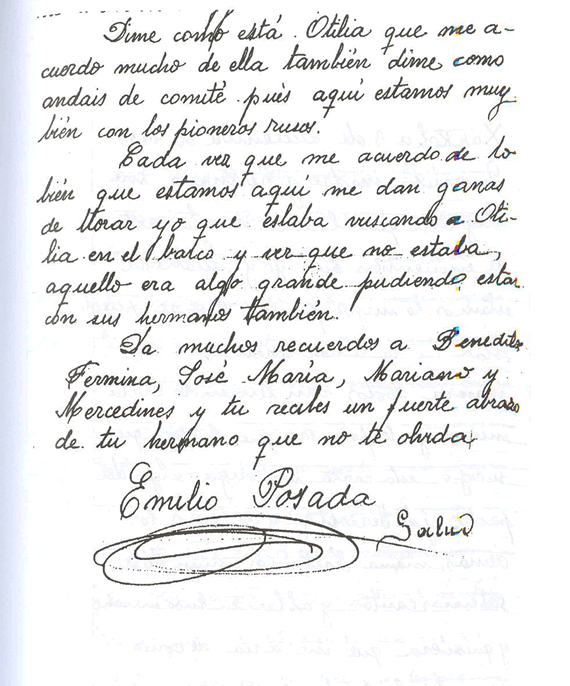 Dime como está Otilia que me a-
cuerdo mucho de ella también dime como
andais de comité pués aquí estamos muy
bién con los pioneros rusos.
Cada vez que me acuerdo de lo
bién que estamos aquí me dan ganas
de llorar yo que estaba vuscando a Oti-
lia en el barco y ver que no estaba,
aquello era algo grande pudiendo estar
con sus hermanos también.
Da muchos recuerdos a Benedita
Fermina, José María, Mariano y
Mercedines y tu recibes un fuerte abrazo
de tu hermano que no te olvida
Emilio Posada
Salud